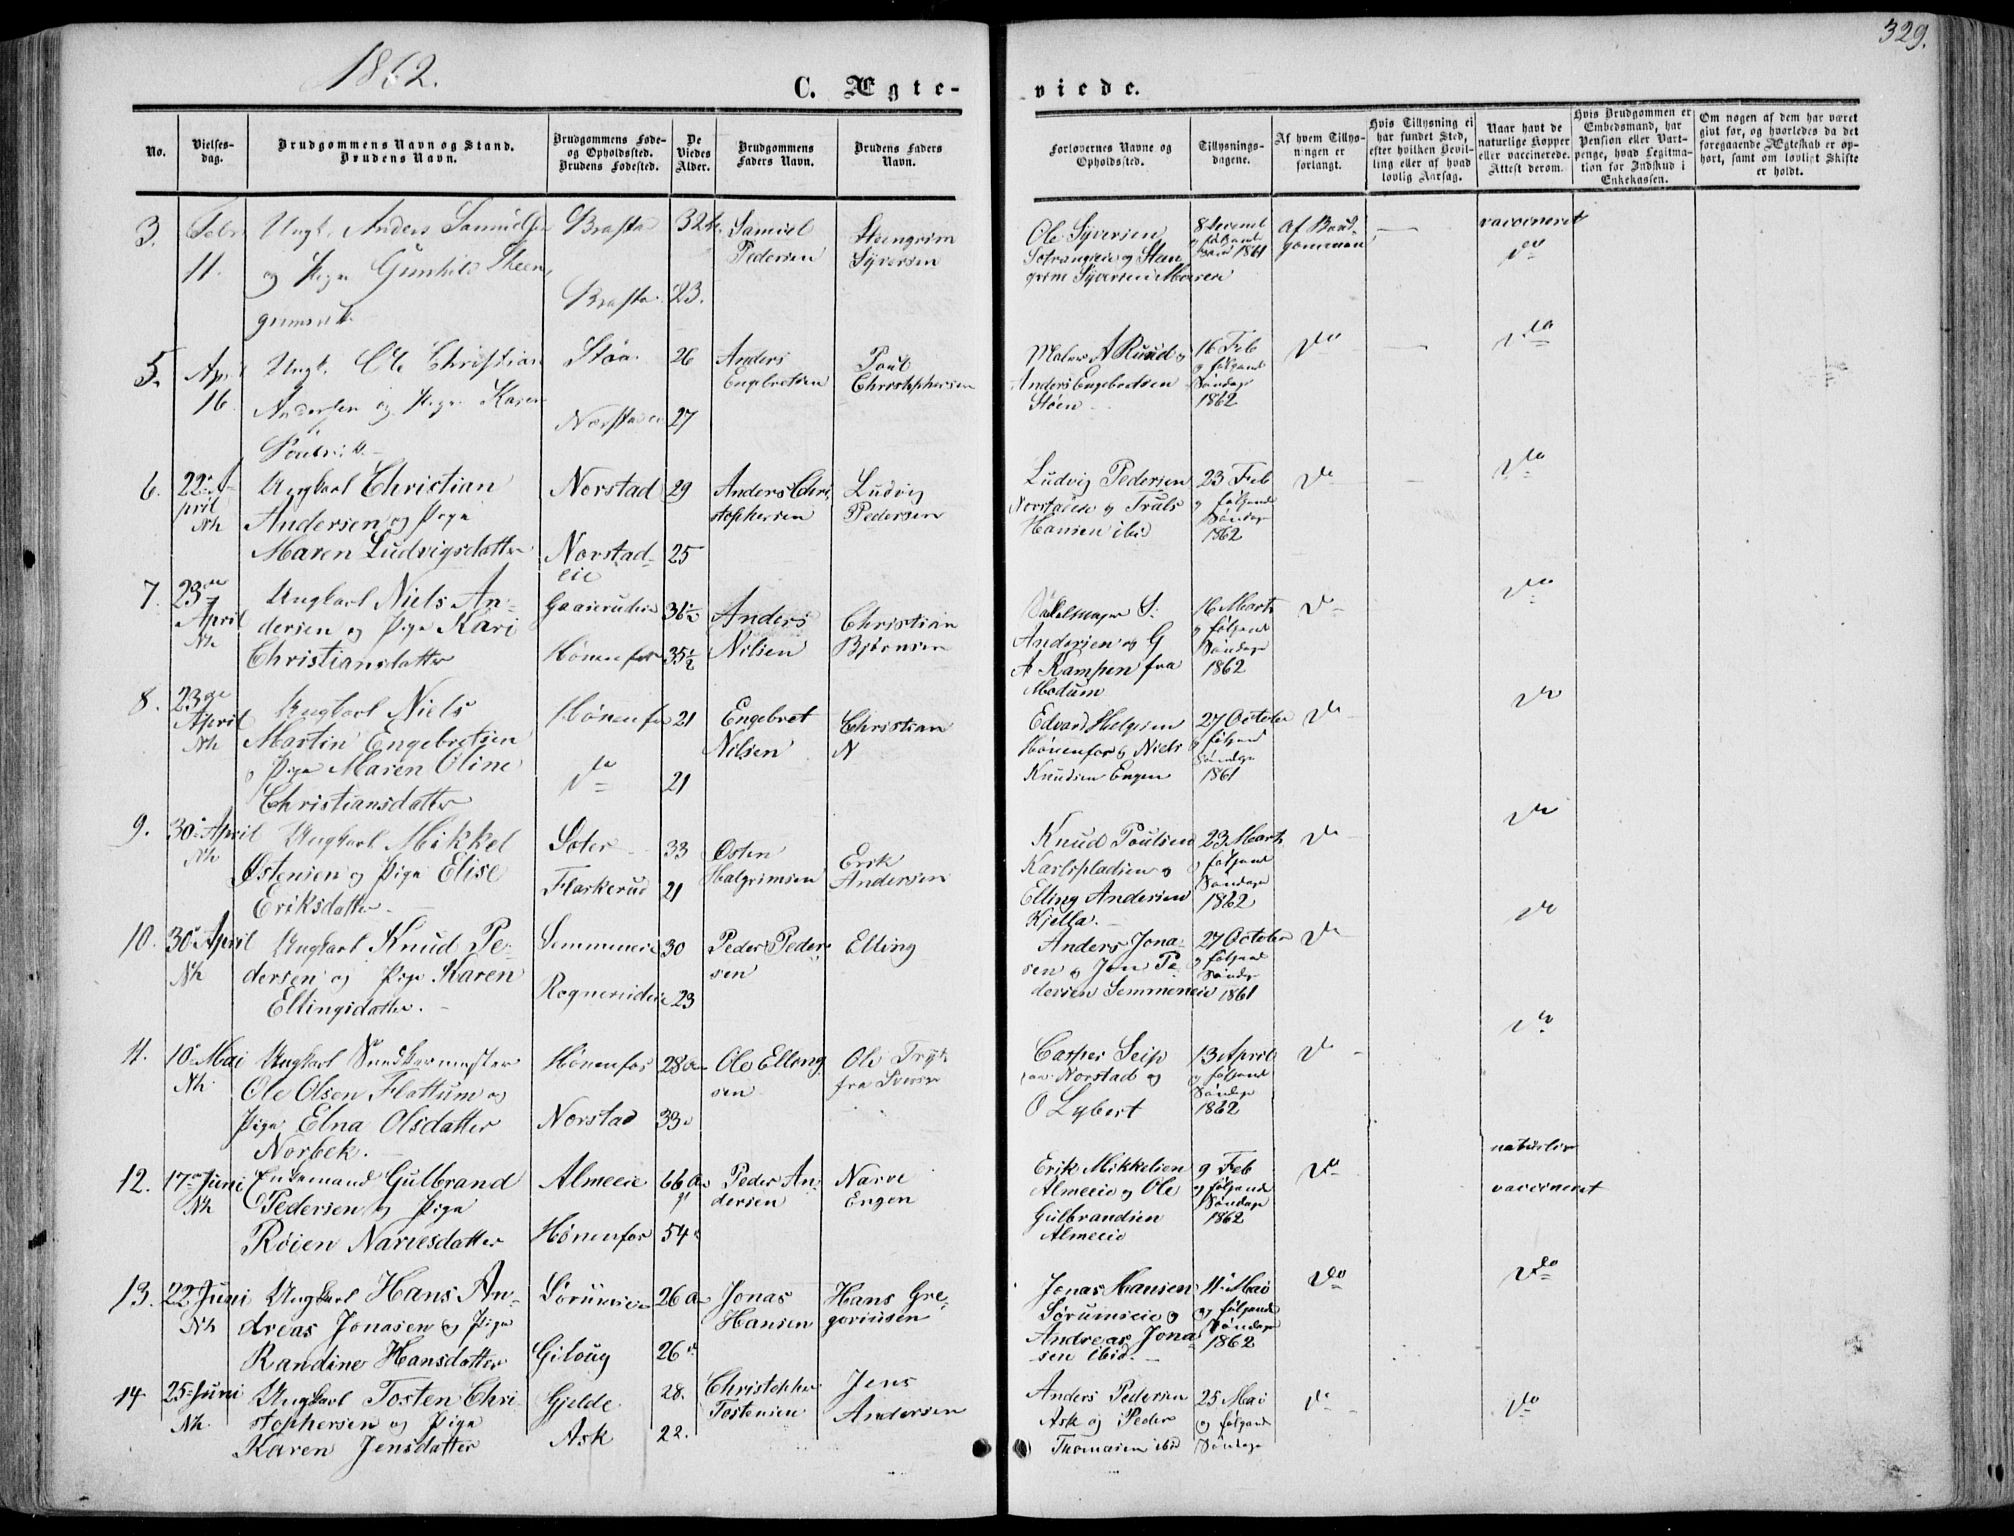 1862.
329.
C. Ægte-
viede.
No.
Vielses-
dag.
Brudgommens Navn og Stand.
Brudens Navn.
Brudgommens Føde-
og Opholdsted.
Brudens Fødested.
De
Viedes
Alder.
Brudgommens
Faders Navn.
Brudens Faders
Navn.
Forlovernes Navne og
Opholdssted.
Tillysnings-
dagene.
Af hvem Tillys-
ningen er
forlangt.
Hvis Tillysning ei
har fundet Sted,
efter hvilken Bevil-
ling eller af hvad
lovlig Aarsag.
Naar havt de
naturlige Kopper
eller vaccinerede.
Attest derom.
Hvis Brudgommen er
Embedsmand, har
Pension eller Vart-
penge, hvad Legitima-
tion for Indskud i
Enkekassen.
Om nogen af dem har været
givt for, og hvorledes da det
foregaaende Ægteskab er op-
hørt, samt om lovligt Skifte
er holdt.
3.
Febr
11.
Ungk. Anders Samuelsen
og Pige Gunhild Steen
grimsd.
Braksta
Braksta 23.
Samuel
Pedersen
Steengrim
Syversen
Ole Syversen
og Steen
grim Syversen Moeneie
og følgende
1861
Af Brud-
gommen
vaccineret
do
5.
April
16.
Ungk. Ole Christian
Andersen og Pige Karen
Poulsd.
Støa
26
27
Anders
Engebretsen
Poul
Christophersen
Maler A Ruud og
Anders Engebretsen
Støen
16 Feb
og følgende
Søndage
1862
do
do
6.
22 A
pril
Nh
Ungkarl Christian
Andersen og Pige
Maren Ludvigsdatter
Norstad
Norstad-
eie
29
25
Anders Chri
stophersen
Ludvig
Pedersen
Ludvig Pedersen
Norstadeie og Truls
Hansen ibid
23 Feb
og følgende
Søndage
1862
do
do
7.
23de
April
Nh
Ungkarl Niels An-
dersen og Pige Kari
Christiansdatter
Hønenfos
31½
35½
Anders
Nilsen
Christian
Bjørnsen
Sadelmager S.
Andersen og G
A Kampen fra
Modum
16 Marts
og følgende
Søndage
1862
do
do
8.
23de
April
Nh
Ungkarl Niels
Martin Engebretsen
og Pige Maren Oline
Christiansdatter
Hønenfos
do
21
21
Engebret
Nilsen
Christian
N
Edvard Helgesen
Hønenfos og Niels
Knudsen Engen
27 October
og følgende
Søndage
1861
do
do
9.
30 April
Nh
Ungkarl Mikkel
Østensen og Pige Elise
Eriksdatter.
Flaskerud
33
21
Østen
Halgrimsen
Erik
Andersen
Knud Poulsen
Karlspladsen og
Elling Andersen
Kjella.
23 Marts
og følgende
Søndage
1862
do
do
10.
30 April
Nh
Ungkarl Knud Pe-
dersen og Pige Karen
Ellingsdatter.
Semmeneie
30
23
Peder Peder-
sen
Elling
Anders Jona-
sen og Jon Pe-
dersen Semmeneie
27 October
og følgende
Søndage
1861
do
do
11.
10 Mai
Nh.
Ungkarl
Ole Olsen Flattum og
Pige Elna Olsdatter
Norbek.
Hønenfos
Norstad
28
33
Ole Elling
sen
Ole
fra
Casper Seip
Norstad og
O Lybert
13 April
og følgende
Søndage
1862
do
do
12.
17 Juni
Nh
Enkemand Gulbrand
Pedersen og Pige
Røien Narvesdatter
Almeeie
Hønenfos
66
54
Peder An-
dersen
Narve
Engen
Erik Mikkelsen
Almeeie og Ole
Gulbrandsen
Almeeie
9 Feb
og følgende
Søndage
1862
do
naturlige
vaccineret
13.
22 Juni
Nh
Ungkarl Hans An-
dreas Jonasen og Pige
Randine Hansdatter
Sørumeie
Gilbug
26
26
Jonas
Hansen
Hans Gre-
goriusen
Jonas Hansen
Sørumseie og
Andreas Jona-
sen ibid.
11 Mai
og følgende
Søndage
1862
do
do
14.
25 Juni
Nh.
Ungkarl Tosten Chri
stophersen og Pige
Karen Jensdatter
Gjelde
Ask
28.
22.
Christopher
Tostensen
Jens
Andersen
Anders Pedersen
Ask og Peder
Thomasen ibid
25 Mai
og følgende
Søndage
do
do